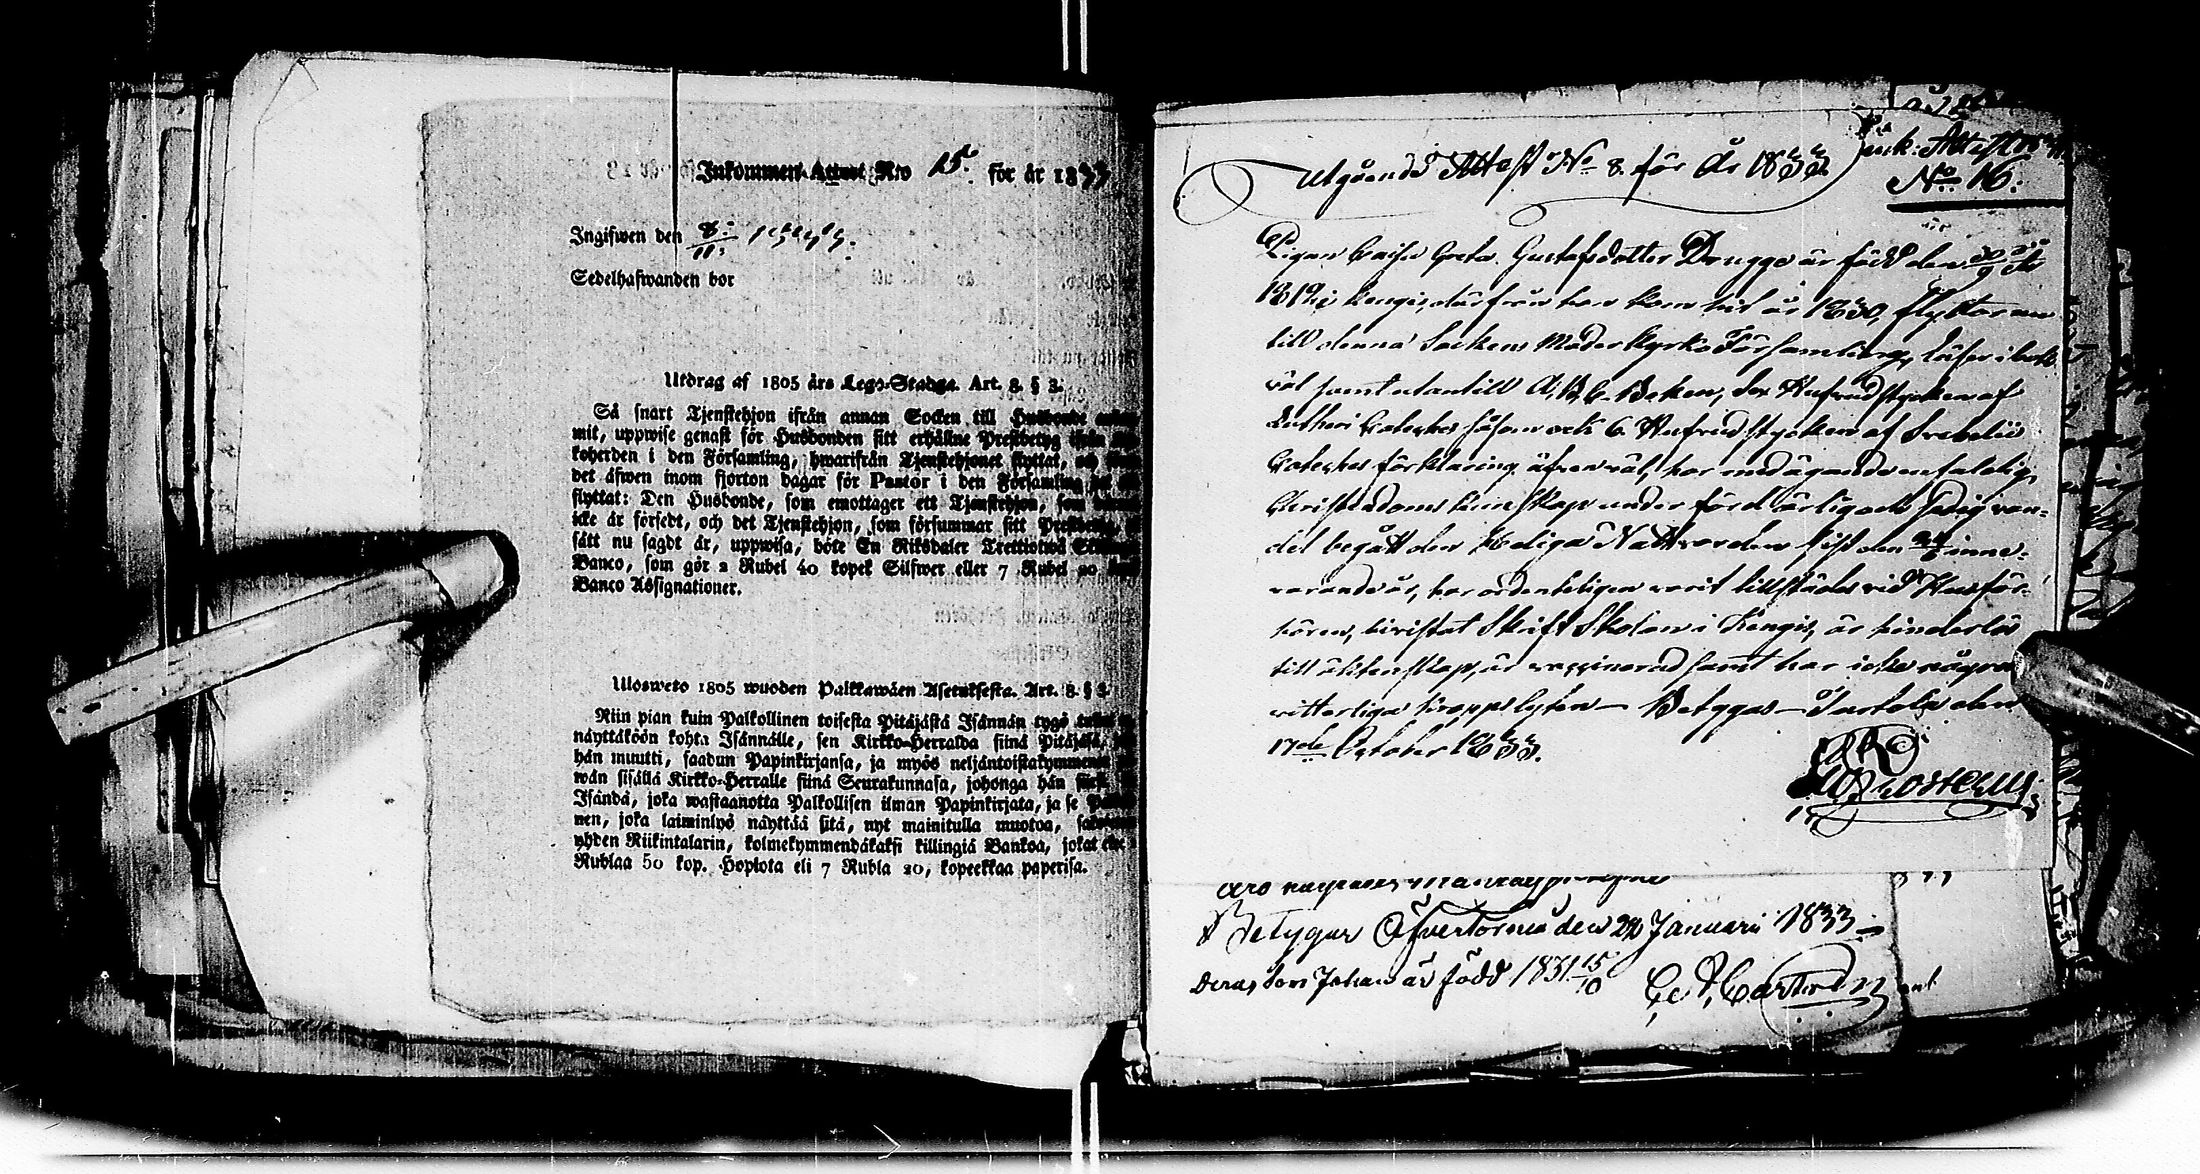 Inkommen Attest N:o 15. för år 1833
Ingifwen den 8/11 1833.
Sedelhafwanden bor
Utdrag af 1805 års Lego-Stadga. Art. 8. § 3.
Så snart Tjenstehjon ifrån annan Socken till Husbonde
mit, uppwise genast för Husbonden sitt erhållne Prestbetyg ifrån
koherden i den Församling, hwarifrån Tjenstehjonet flyttat, och
det äfwen inom fjorton dagar för Pastor i den Församling
flyttat: Den Husbonde, som emottager ett Tjenstehjon, som
icke är försedt, och det Tjenstehjon, som försummar sitt Prestbetyg,
sätt nu sagdt är, uppwisa, böte En Riksdaler Trettiotwå
Banco, som gör 2 Rubel 40 kopek Silfwer eller 7 Rubel 20
Banco Assignationer.
Ulosweto 1805 wuoden Palkkawäen Asetuksesta. Art. 8. § 3.
Niin pian kuin Palkollinen toisesta Pitäjästä Isännän tygö
näyttäköön kohta Isännälle, sen Kirkko-Herralda siinä Pitäjäsä,
hän muutti, saadun Papinkirjansa, ja myös neljäntoistakymmenen
wän sisällä Kirkko-Herralle siinä Seurakunnasa, johonga hän
Isändä, joka wastaanotta Palkollisen ilman Papinkirjata, ja se
nen, joka laiminlyö näyttää sitä, nyt mainitulla muotoa,
yhden Riikintalarin, kolmekymmendäkaksi killingiä Bankoa, jokat
Rublaa 50 kop. Hopiota eli 7 Rubla 20, kopeekkaa paperisa.
Utgående Attest No 8. för År 1833
Ink: Attest
No 16:
Pigan Caisa Greta Gustafsdotter Drugge är född den
1812 i Kengis, därifrån hon kom hit år 1830, flyttar nu
till denna Sockens Moderkyrko Församling, läser i bok
väl samt utantill A,B,C-Boken, Hufvudstycken af
Lutheri Cateches och 6. Hufvudstycken af Svebelii
Cateches förklaring äfven väl, har medägande enfaldig
Christendoms kunskap under förd ärlig och sedig van-
del begått den Heliga Nattvarden sist den inne-
varande år, har ordenteligen varit tillstädes vid Husför-
hören, bivistat Skrift Skolan i Kengis, är hinderlös
till äktenskap, är vaccinerad samt har icke några
vitterliga kroppslyten - Betygas - Pajala den
17de October 1833.
aro
Betygar Öfvertorneå den 24 Januarii 1833
Deras Son Johan är född 1831 15/10